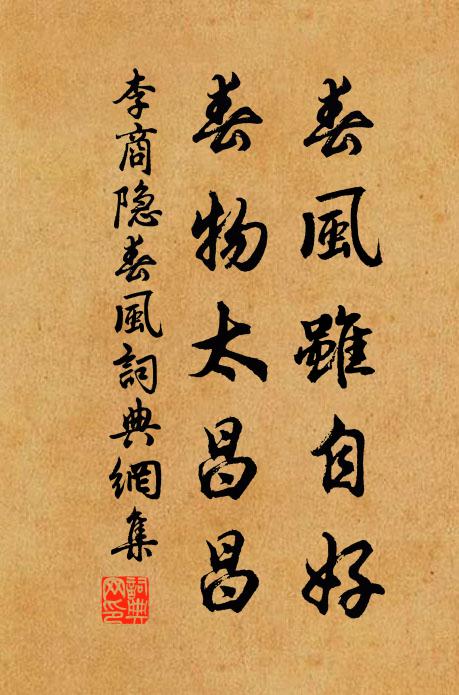 春風雖自好
春物太昌昌
李商隐春風詞典網集
詞典網印